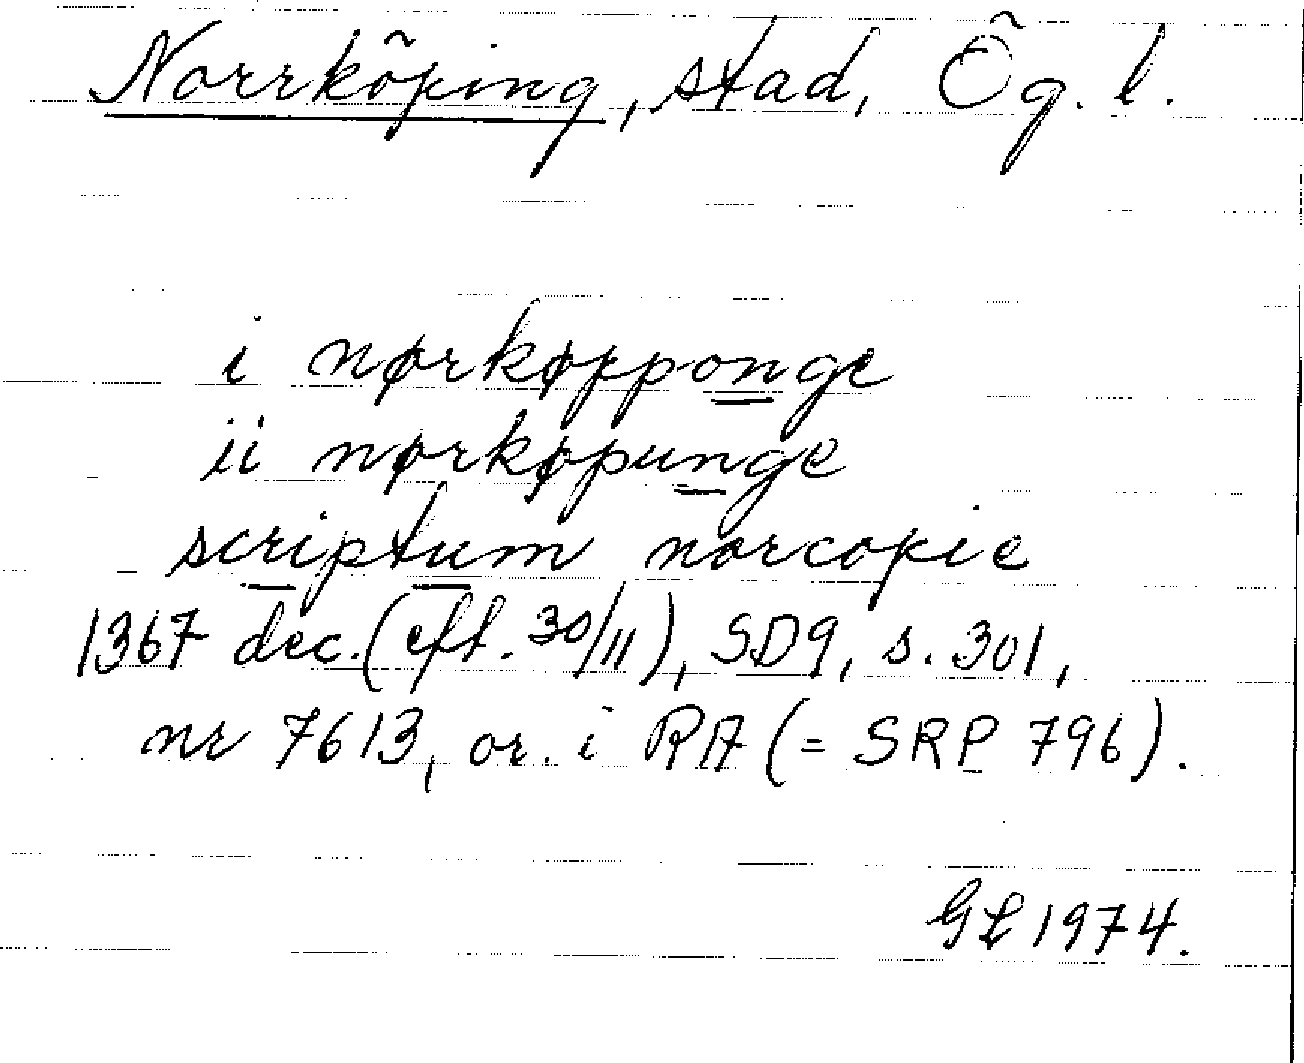 Norrköping, stad, Ög. l.
i nørkøpponge
ii nørkøpunge
scriptum norcopie
1367 dec. (eft. 30/11), SD9, s. 301,
nr 7613, or. i RA (= SRP 796).
GL 1974.